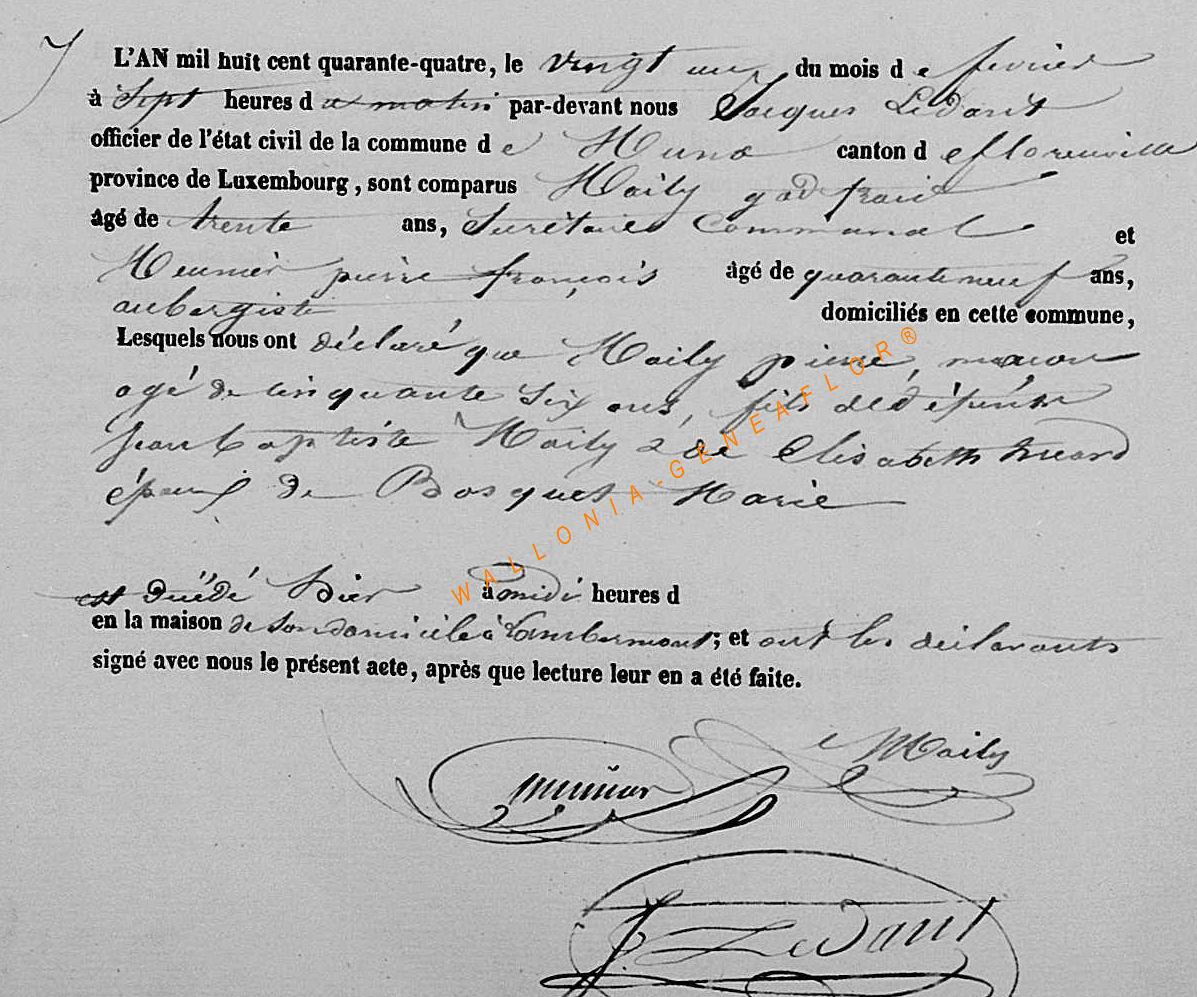 7
L'AN mil huit cent quarante-quatre, le vingt un du mois de fevrier
à Sept heures du matin par-devant nous Jacques Ledant
officier de l'état civil de la commune de Muno canton de florenville
province de Luxembourg, sont comparus Maily godfroid
âgé de trente ans, Secrétaire Communal et
Meunier pierre françois âgé de quarante neuf ans,
aubergiste domiciliés en cette commune,
Lesquels nous ont déclaré que Maily pierre, macon
agé de cinquante Six ans, fils de
jean baptiste Maily & de Elisabeth
époux de Bosquet Marie
est décédé hier à midi heures d
en la maison de Son domicile à Lambermont; et ont les déclarants
signé avec nous le présent acte, après que lecture leur en a été faite.
Maily
Meunier
J Ledant
WALLONIA-GENEAFLOR®